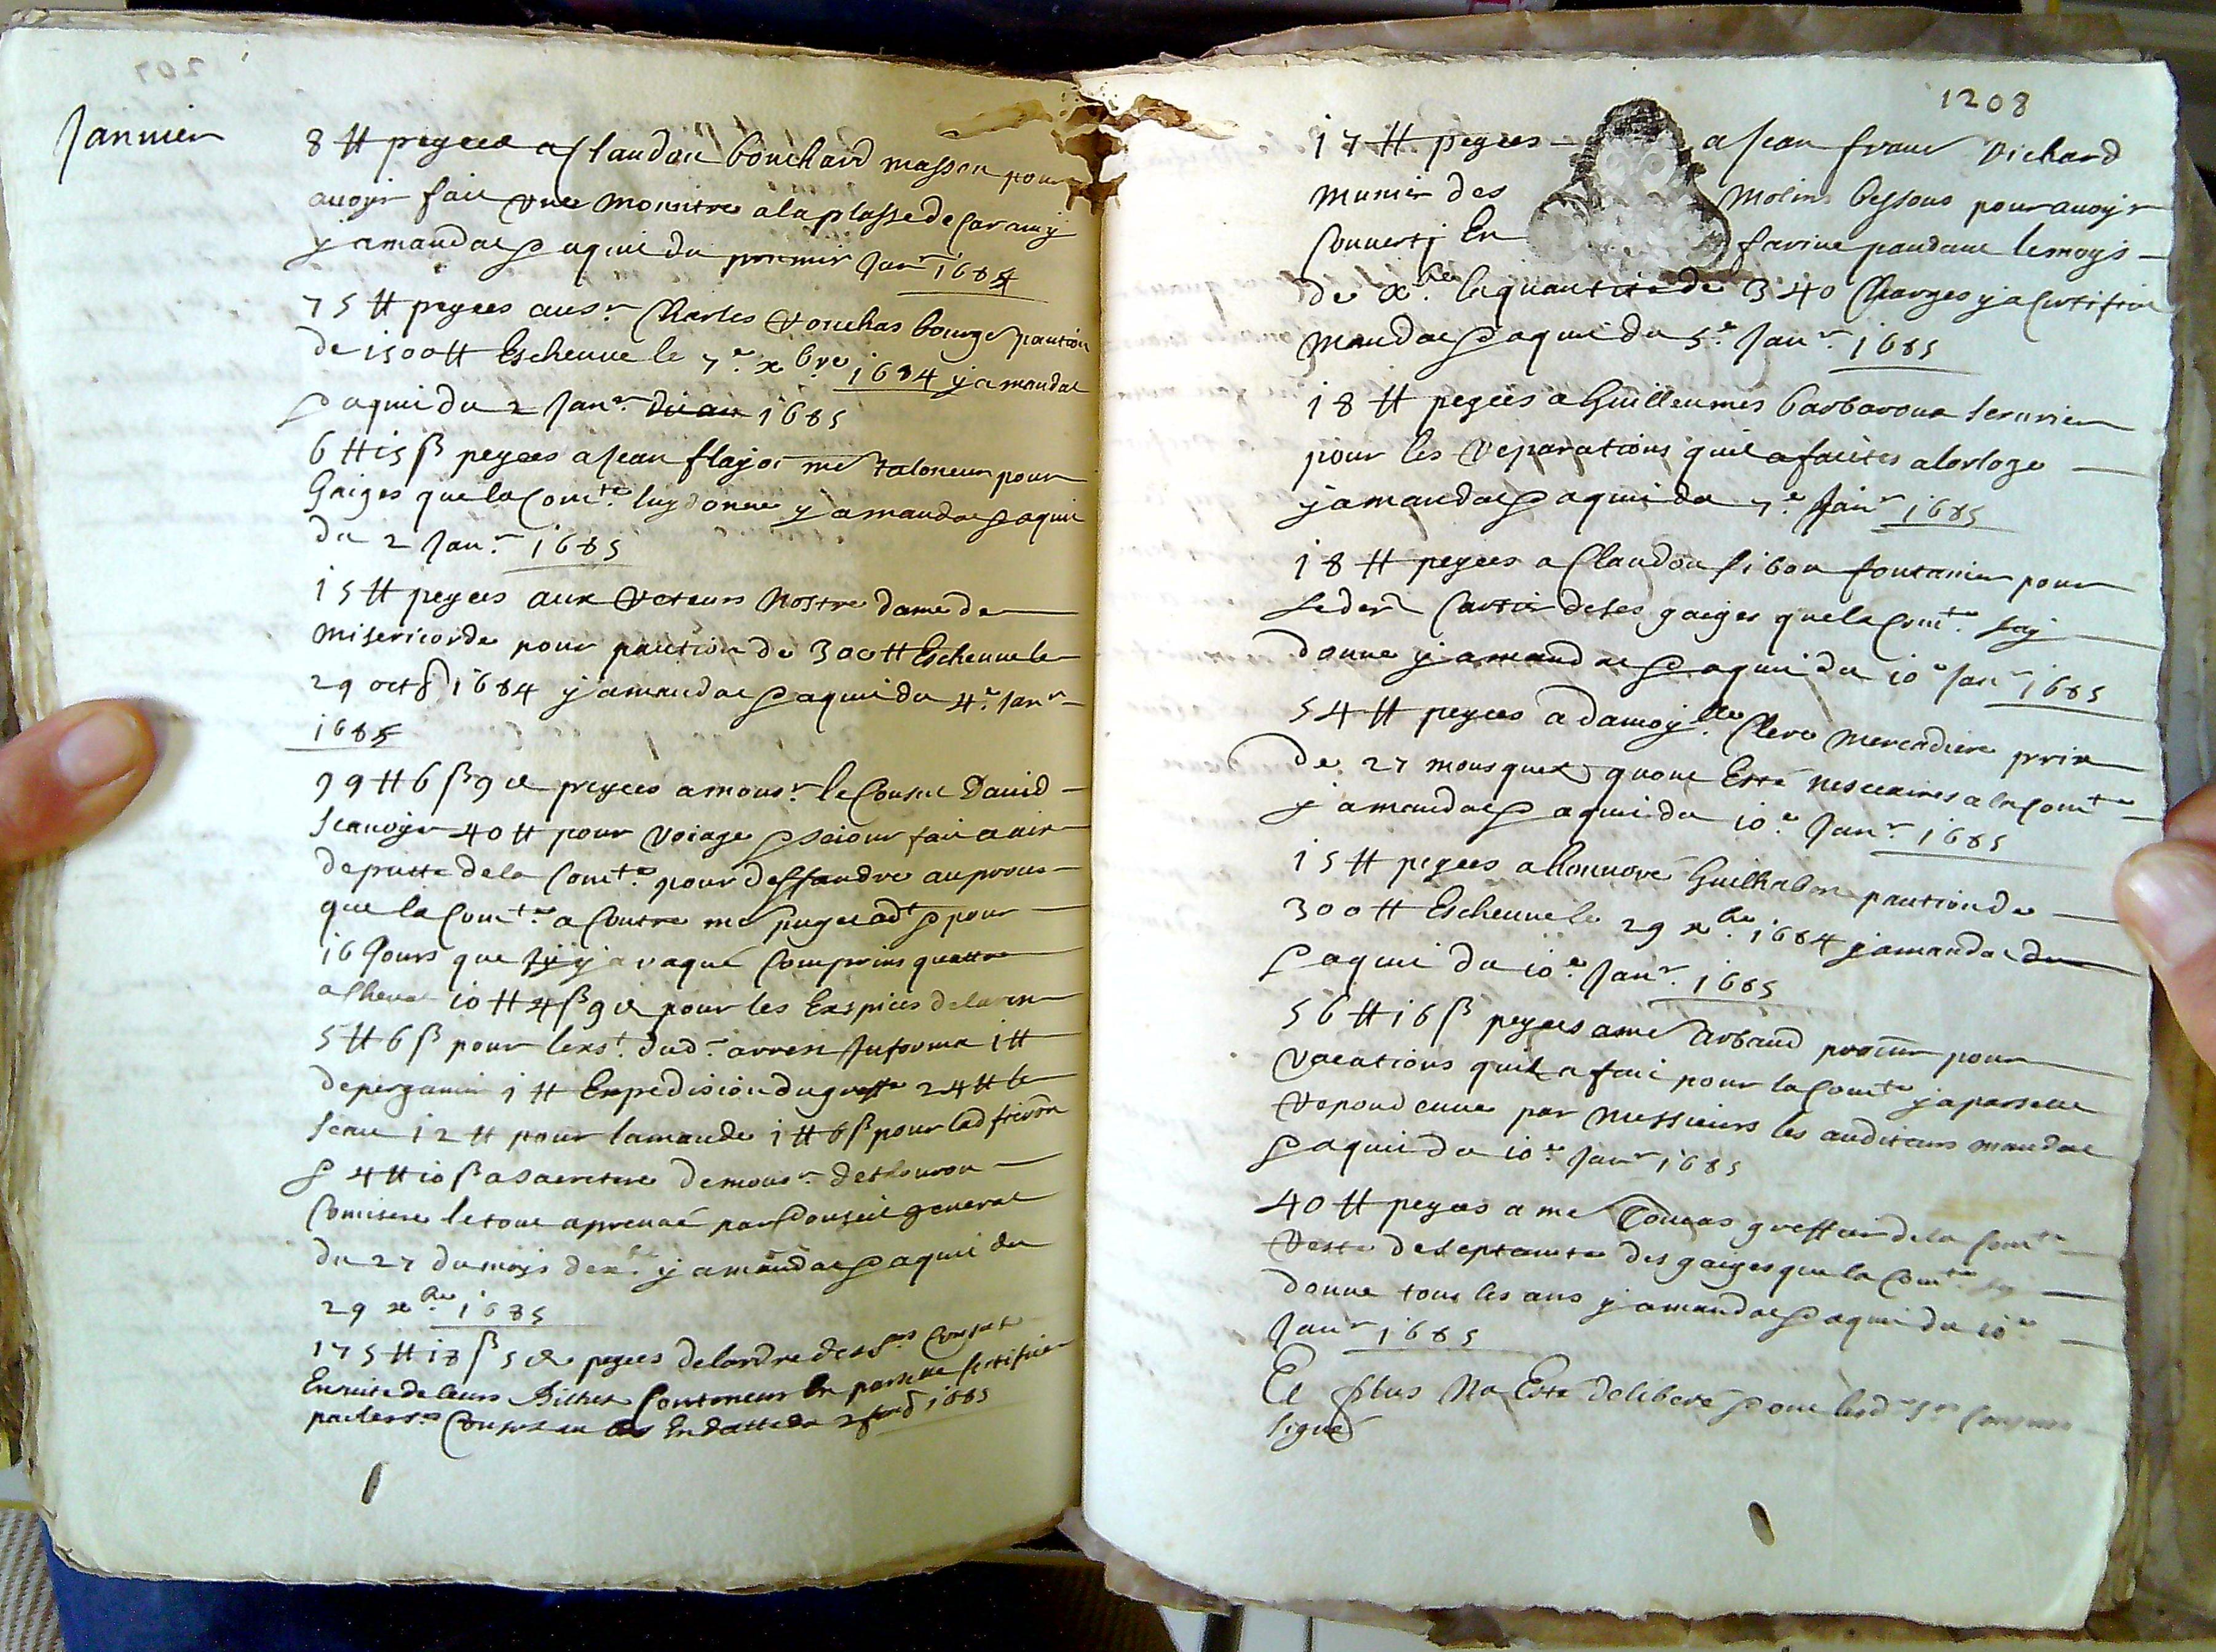 Janvier
8 ₶ peyees a Claudou bouchard masson pour
avoyr fait une mourtre a la plasse de Caramy
y a mandat & aquit du premier Janr 1685
75 ₶ peyees au sr Charles Vouchas bourgs pantion
de 1500 ₶ Escheuue le 7e xbre 1684 y a mandat
& aquit du 2 Janr 1685
6 ₶ 15 ß peyees a Jean flayol me taloneur pour
Gaiges que la Comte luy donne y a mandat & aquit
du 2 Janr 1685
15 ₶ peyees aux Reteurs Nostre dame de
Misericorde pour pantion de 300 ₶ Escheuue le
29 oct 8 1684 y a mandat & aquit du 4e Janr
1685
99 ₶ 6 ß 9 d peyees a monsr le Consul David
scavoyr 40 ₶ pour voiage & seiour fait a aix
depputté de la Comte pour deffandre au proces
que la Comte a Contre me puget adt & pour
16 Jours que y a vaqué Comprins quattre
a Cheval 10 ₶ 4 ß 9 d pour les Exspices de larest
5 ₶ 6 ß pour lexst dud arrest Informa 1 ₶
de pergamin 1 ₶ Expedision du greffe 24 ₶ le
seau 12 ₶ pour lamande 1 ₶ 6 ß pour
& 4 ₶ 10 ß a sacretere de monsr de thouron
Comisere le tout aprouvé par Conseil general
du 27 du mois de xbre y a mandat & aquit du
29 xbre 1685
175 ₶ 18 ß 5 d peyees de lordre des srs Consuls
Ensuite de leurs Billets Contoneur le parselle sertifiée
par les srs Consuls En datte du 1685
1208
17 ₶ peyees a Jean frances Richard
munier des Molins bessons pour avoyr
Converti En farine pandant le moys
de xbre la quantité de 340 Charges y a Certificat
mandat & aquit du 5e Janr 1685
18 ₶ peyees a Guilleumes barbaroux serurier
pour les Reparations quil a faites a lorloge
y a mandat & aquit du 7e Janr 1685
18 ₶ peyees a Claudou sibon fontanier pour
le der Cartier de ses gaiges que la Comte luy
donne y a mandat & aquit du 10e Janr 1685
54 ₶ peyees a damoylle Clere mercadiere prix
de 27 mousquets quont Esté nesceaires a la Comte
y a mandat & aquit du 10e Janr 1685
15 ₶ peyees a Honnoré Guilhabon pantion de
300 ₶ Escheuue le 29 xbre 1684 y a mandat
& aquit du 10e Janr 1685
56 ₶ 16 ß peyees a me arbaud procur pour
vacations quil a fait pour la Comte y a parselle
Repondeuue par messieurs les auditeurs mandat
& aquit du 10e Janr 1685
40 ₶ peyees a me Toucas greffier de la Comte
Reste de septante des gaiges que la Comte luy
donne tous les ans y a mandat & aquit du 10e
Janr 1685
Et plus Na Esté deliberé & ont lesd srs Consuls
signé